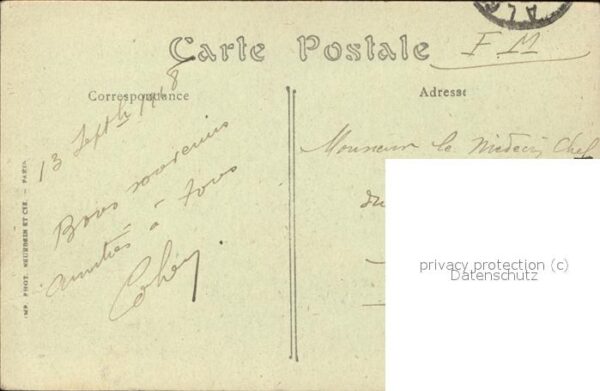 Carte Postale
F M
Correspondance
Adresse
13 Sept 1918
Bons souvenirs
amitiés à tous
Cohen
Monsieur le Médecin Chef
du
IMP. PHOT. NEURDEIN ET CIE. — PARIS
privacy protection (c)
Datenschutz